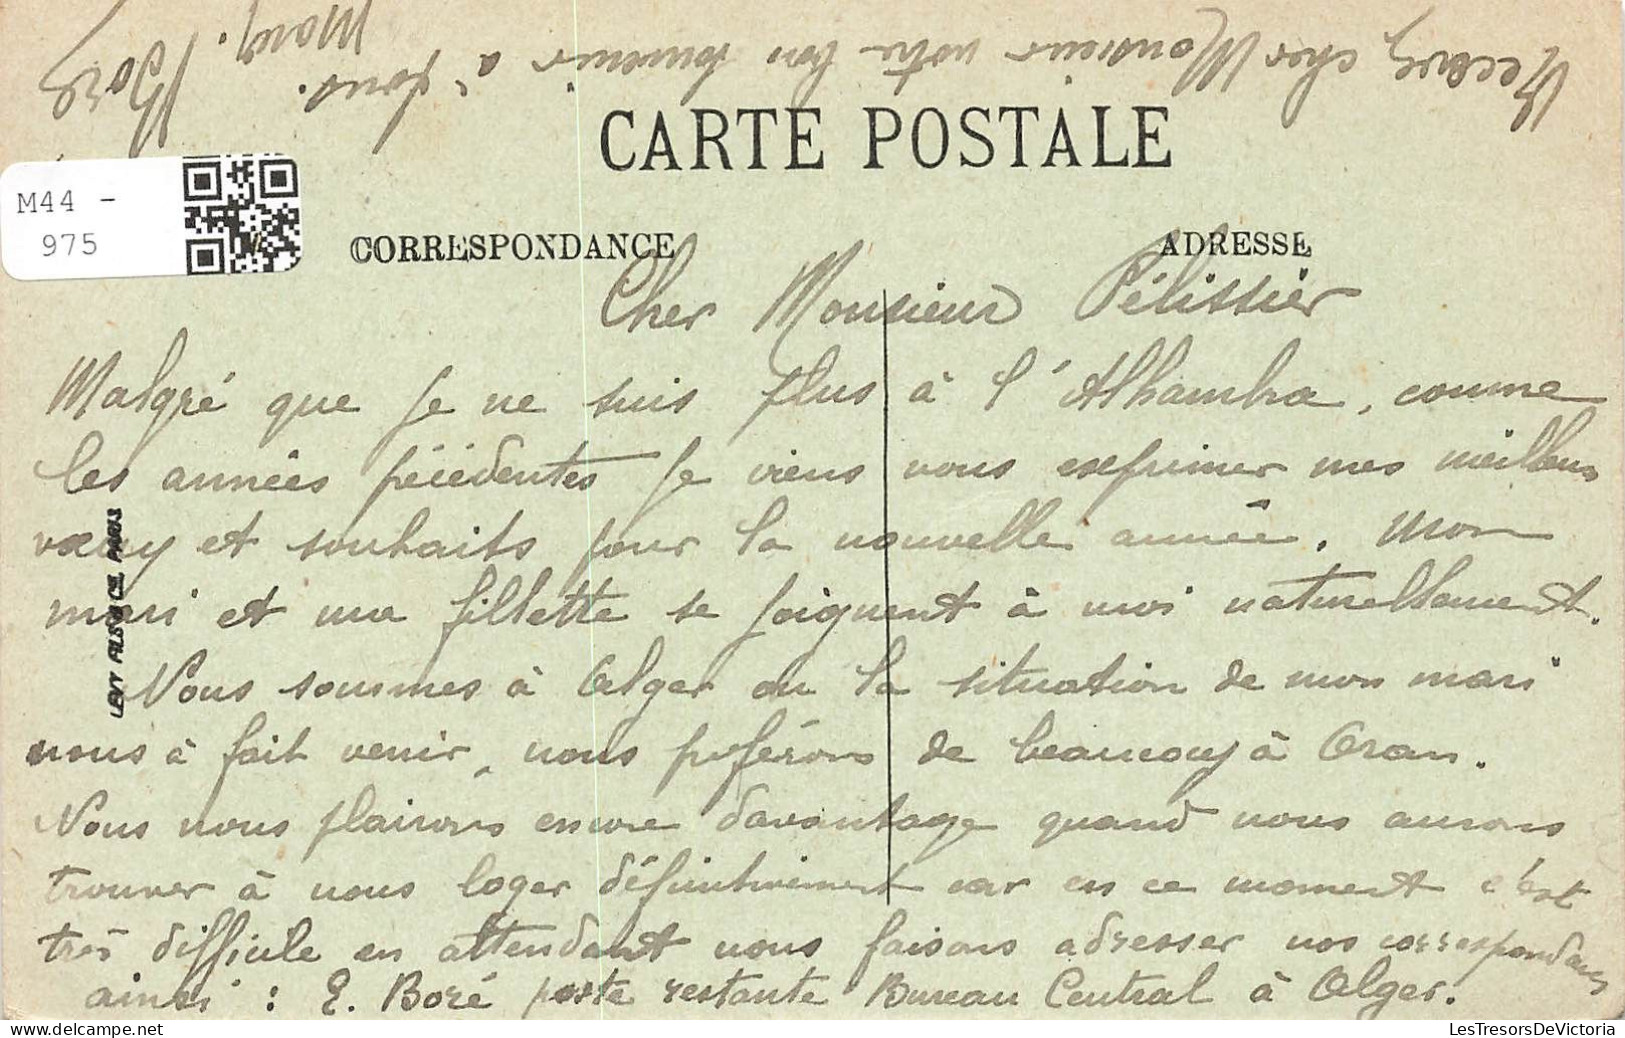 CARTE POSTALE
CORRESPONDANCE
ADRESSE
M44 -
975
Cher Monsieur Pélissier
Malgré que je ne suis plus à l'Alhambra, comme
les années précédentes je viens vous exprimer mes meilleurs
vœux et souhaits pour la nouvelle année. Mon
mari et ma fillette se joignent à moi naturellement.
Nous sommes à Alger ou la situation de mon mari
nous à fait venir, nous préférons de beaucoup à Oran.
Nous nous plairons encore davantage quand nous aurons
trouver à nous loger définitivement car en ce moment c'est
très difficile en attendant nous faisons adresser nos correspondances
ainsi : E. Boré poste restante Bureau Central à Alger.
Recevez cher Monsieur notre bon souvenir à tous.
Mary.
Boré
LEVY FILS & CIE, PARIS
LesTresorsDeVictoria